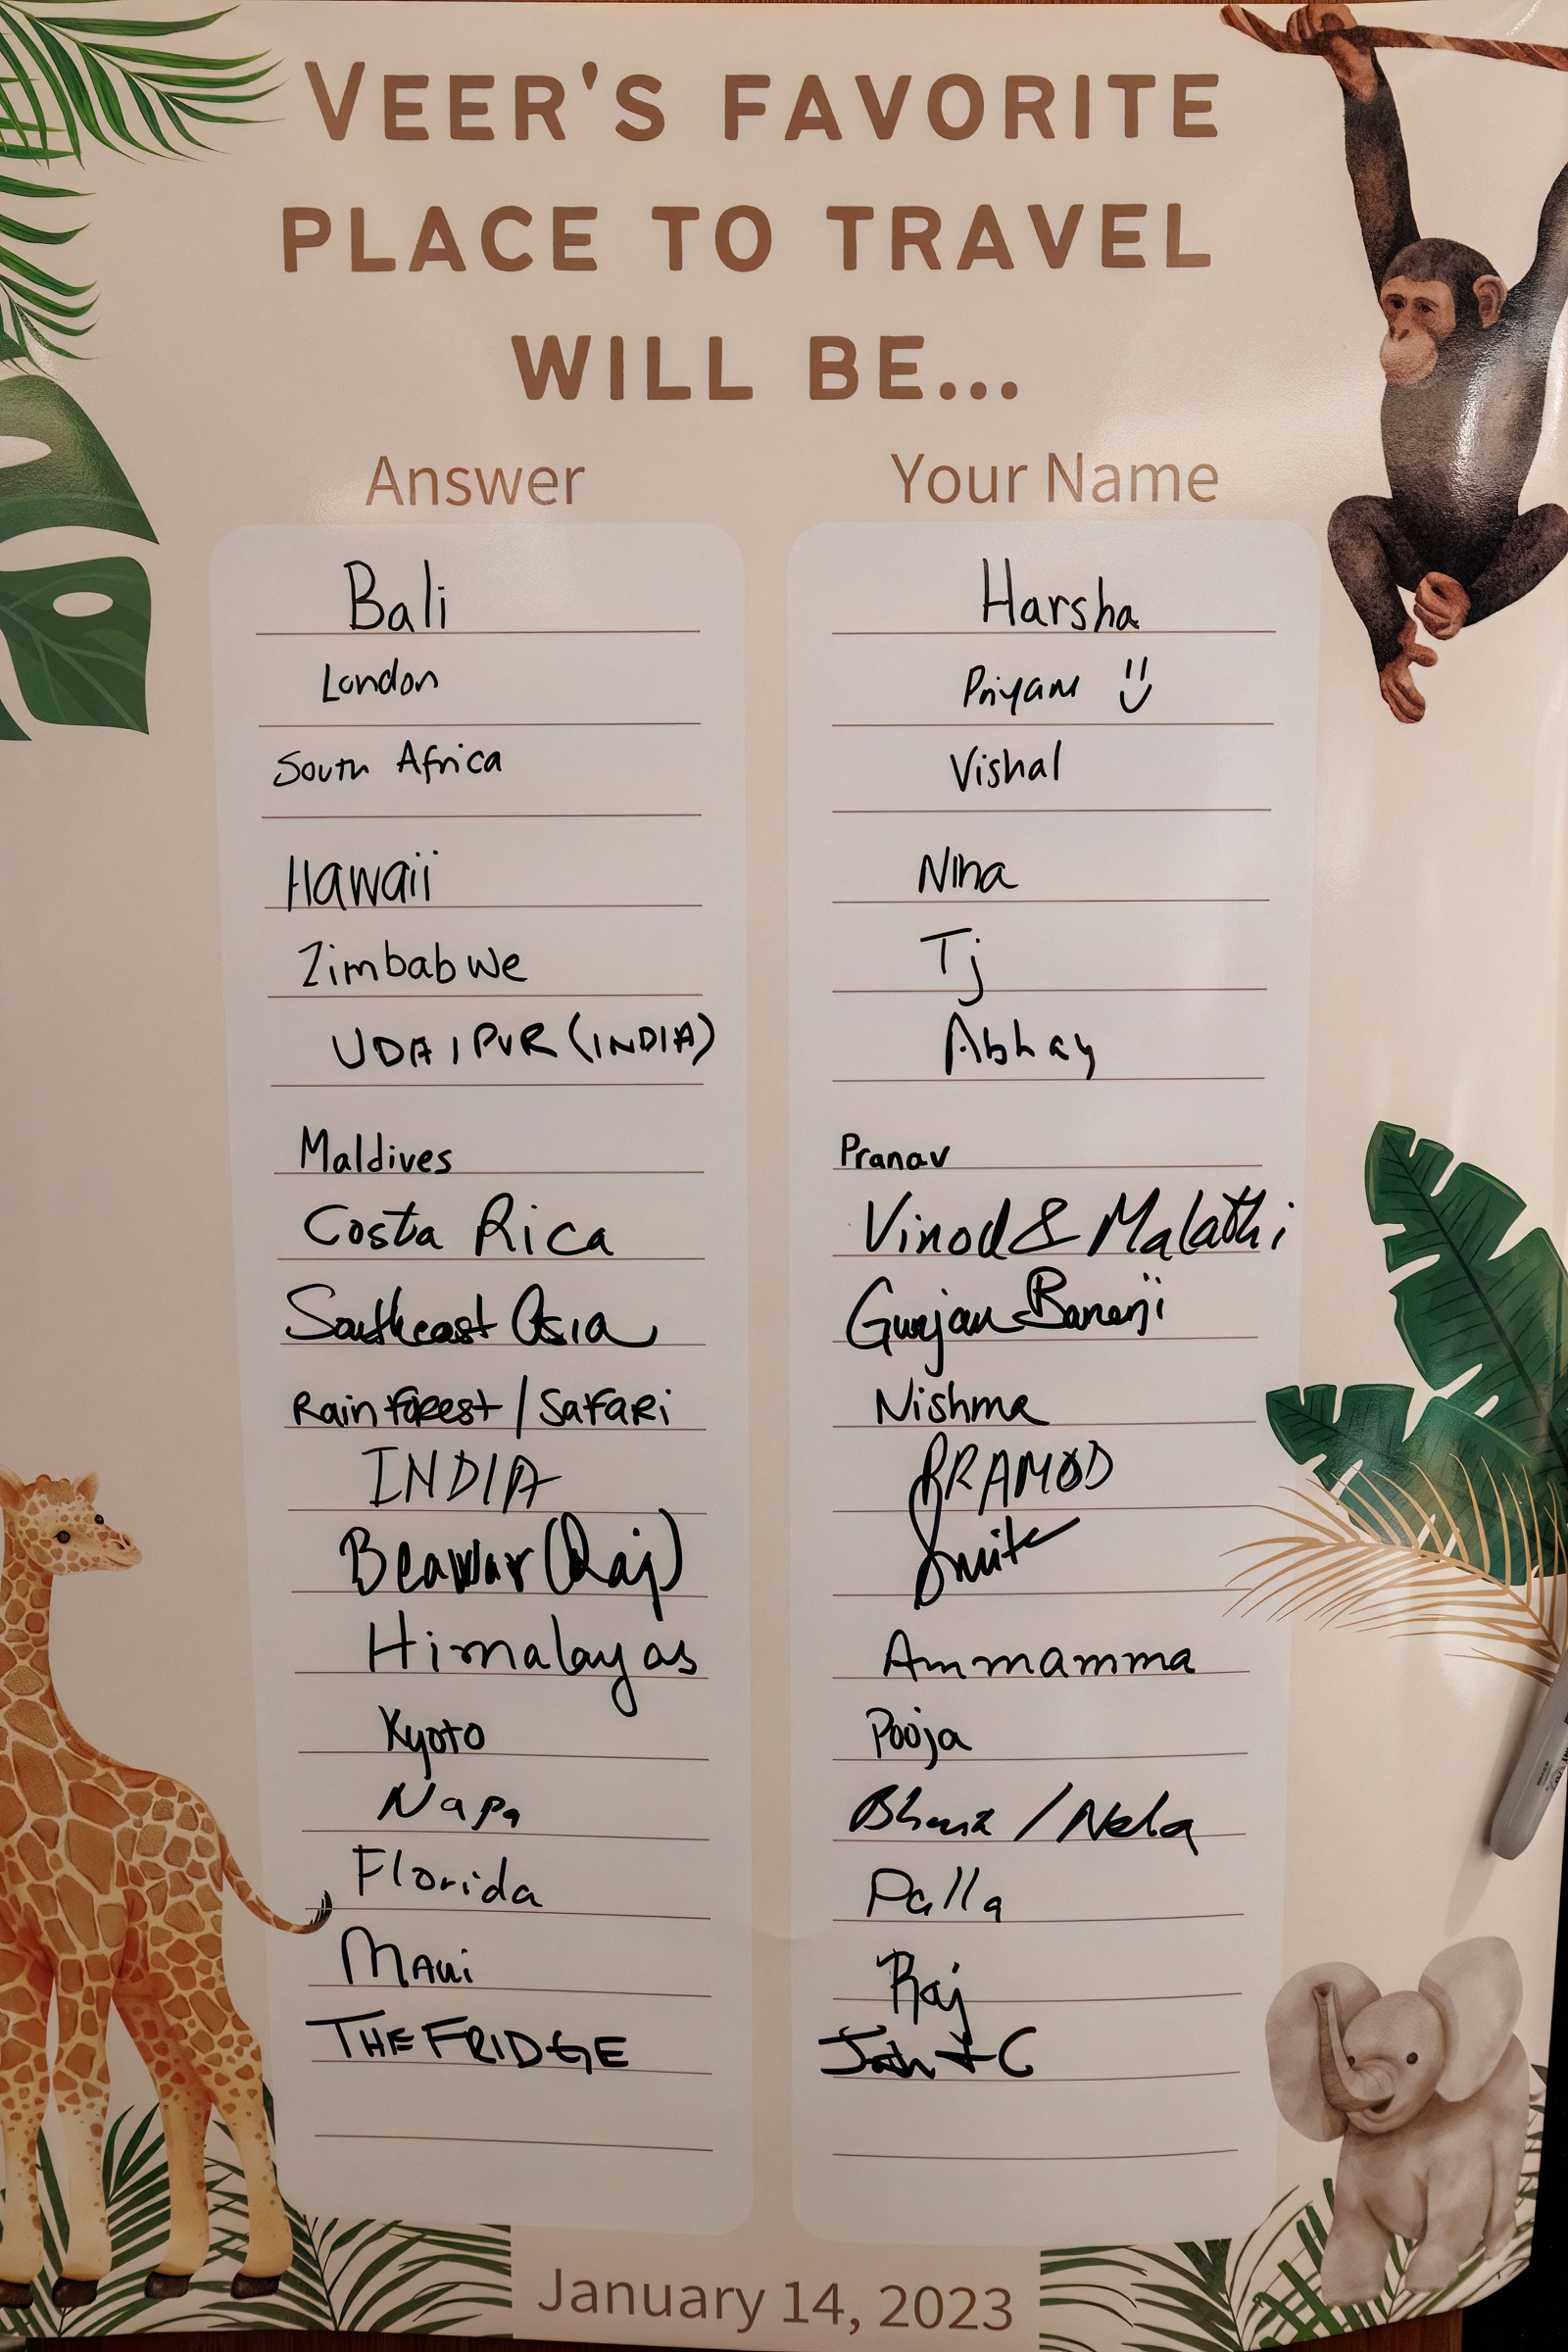 VEER'S FAVORITE
PLACE TO TRAVEL
WILL BE...
Answer Your Name
Bali Harsha
London Priyam
South Africa Vishal
Hawaii Nina
Zimbabwe Tj
UDAIPUR (INDIA) Abhay
Maldives Pranav
Costa Rica Vinod & Malathi
Southeast Asia Gunjan Banerji
Rainforest / Safari Nishma
INDIA PRAMOD
Beawar (Raj)
Himalayas Ammamma
Kyoto Pooja
Napa
Florida Palla
Maui Raj
THE FRIDGE
January 14, 2023